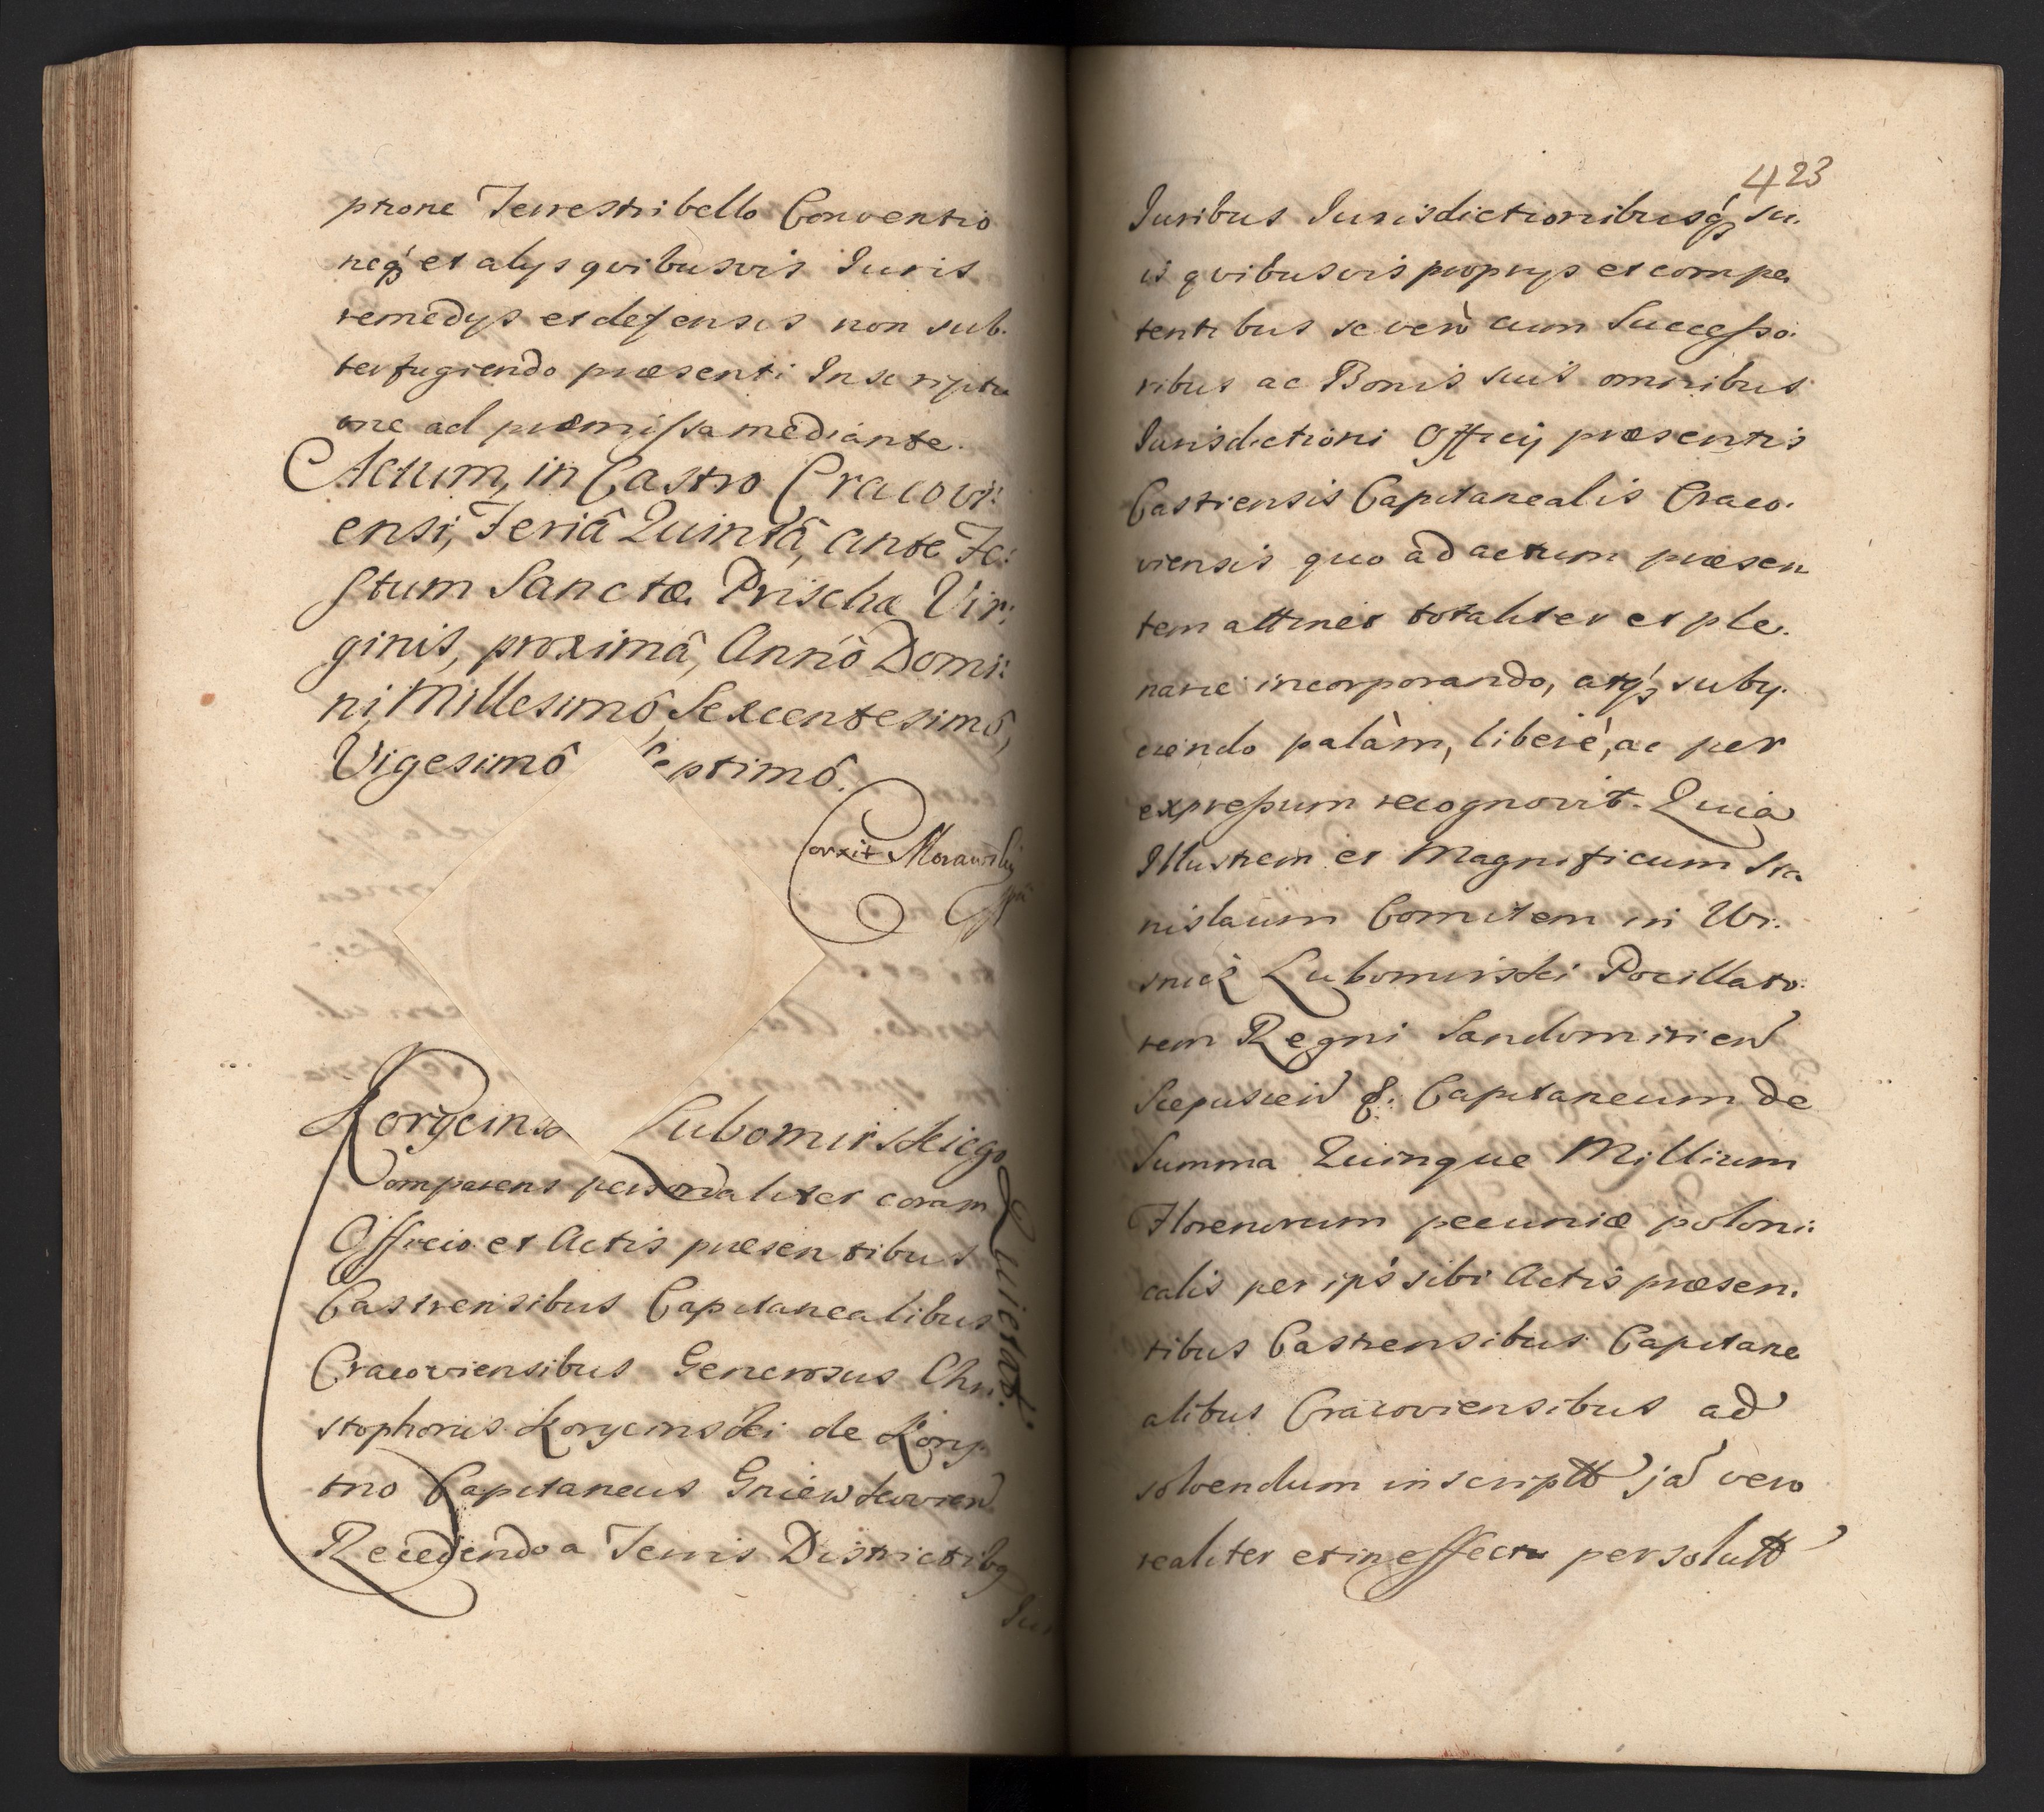 ptione Terrestri bello Conventio
neq́ꝫ et alys qvibusvis Iuris
remedys et defensis non sub.
terfugiendo præsenti Inscripti
one ad præmissa mediante.
Actum, in Castro Cracovi:
ensi, Feriâ Quintâ, ante Fe:
stum Sanctæ Prischæ Vir:
ginis, proximâ, Annô Domi:
ni, Millesimô, Sexcentesimô,
Vigesimô Septimô.
Corxit Morawski
Korycinsk Lubomirskiego
Quietat.
Comparens personaliter coram
Officio et Actis præsentibus
Castrensibus Capitanealibus
Cracoviensibus Generosus Chri
stophorus Korycinski de Kory
tno Capitaneus Gniewkovien
Recedendo a Terris Districtibꝫ
Iur
423
Iuribus Iurisdictionibusq́ꝫ su.
is qvibusvis proprys et compe
tentibus se vero cum Successo.
ribus ac Bonis suis omnibus
Iurisdictioni Officij præsentis
Castrensis Capitanealis Craco.
viensis quo ad actum præsen
tem attinet totaliter et ple.
narie incorporando, atq́ꝫ suby.
ciendo palàm, liberè, ac per
expressum recognovit. Quia
Illustrem et Magnificum Sta
nislaum Comitem in Wi.
snicz Lubomirski Pocillato.
rem Regni Sandomirien
Scepusien &. Capitaneum de
Summa Quinque Millium
Florenorum pecuniæ poloni:
calis per ips sibi Actis præsen.
tibus Castrensibus Capitane
alibus Cracoviensibus ad
solvendum inscriptt ja vero
realiter et in effectu persolutt